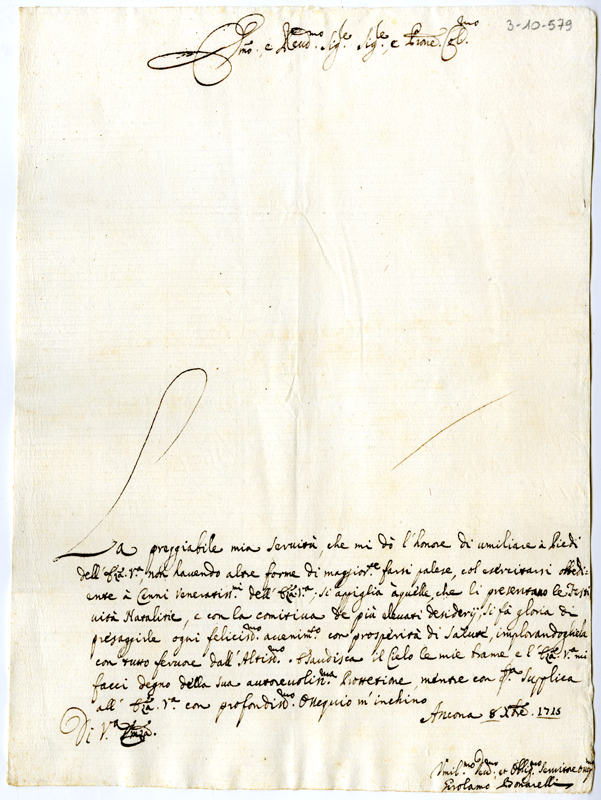 3-10-579
Emo, e Reud.mo Sig.re Sig.re, e Prone Col.mo
La preggiabile mia seruitù, che mi dò l'honore di umiliare à Piedi
dell'Em.za V.ra non hauendo altre forme di maggior.te farsi palese, col esercitarsi obbedi-
ente à Cenni Veneratiss.mi dell'Em.za V.ra; si appiglia à quelle, che li presentano le Festi
uità Natalitie, e con la comitiua de più eleuati desiderij, si fà gloria di
presaggirle ogni feliciss.mo auuenim.to con prosperità di Salute, implorandoglielo
con tutto feruore dall'Altiss.mo. Esaudisca il Cielo le mie brame e l'Em.za V.ra mi
facci degno della sua autoreuoliss.ma Prottetione, mentre con q.ta Supplica
all'Em.za V.ra con profondiss.mo Ossequio m'inchino
Ancona 8 Xbre 1715
Di V.ra Em.za
Vmil.mo Deu.mo et Oblig.mo Seruitore
Girolamo Bonarelli